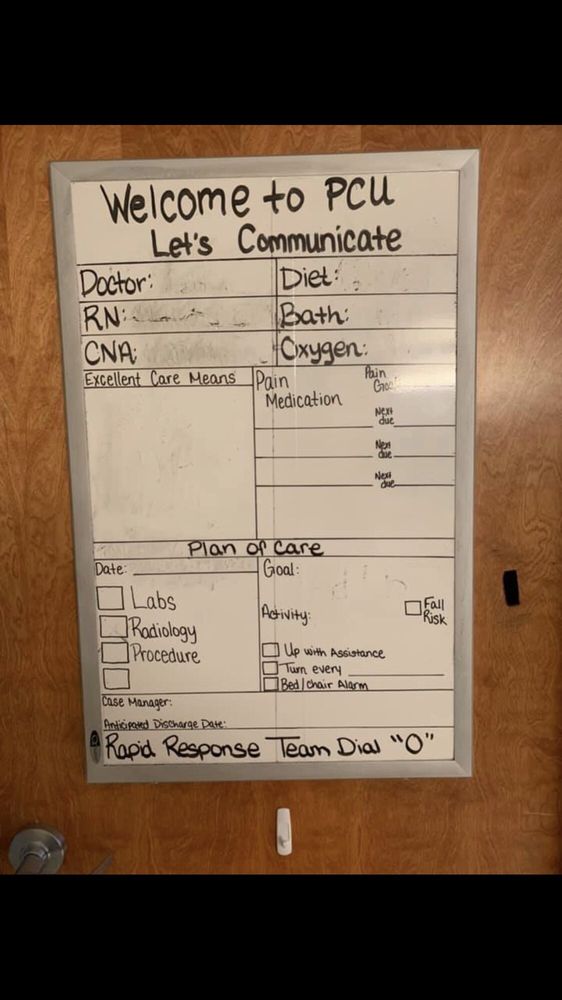 Welcome to PCU
Let's Communicate
Doctor:
Diet:
RN:
Bath:
CNA:
Oxygen:
Excellent Care Means
Pain
Medication
Pain
Goal
Next
due
Next
due
Next
due
Plan of Care
Date:
Goal:
Labs
Radiology
Procedure
Activity:
Fall
Risk
Up with Assistance
Turn every
Bed/chair Alarm
Case Manager:
Anticipated Discharge Date:
Rapid Response Team Dial "O"